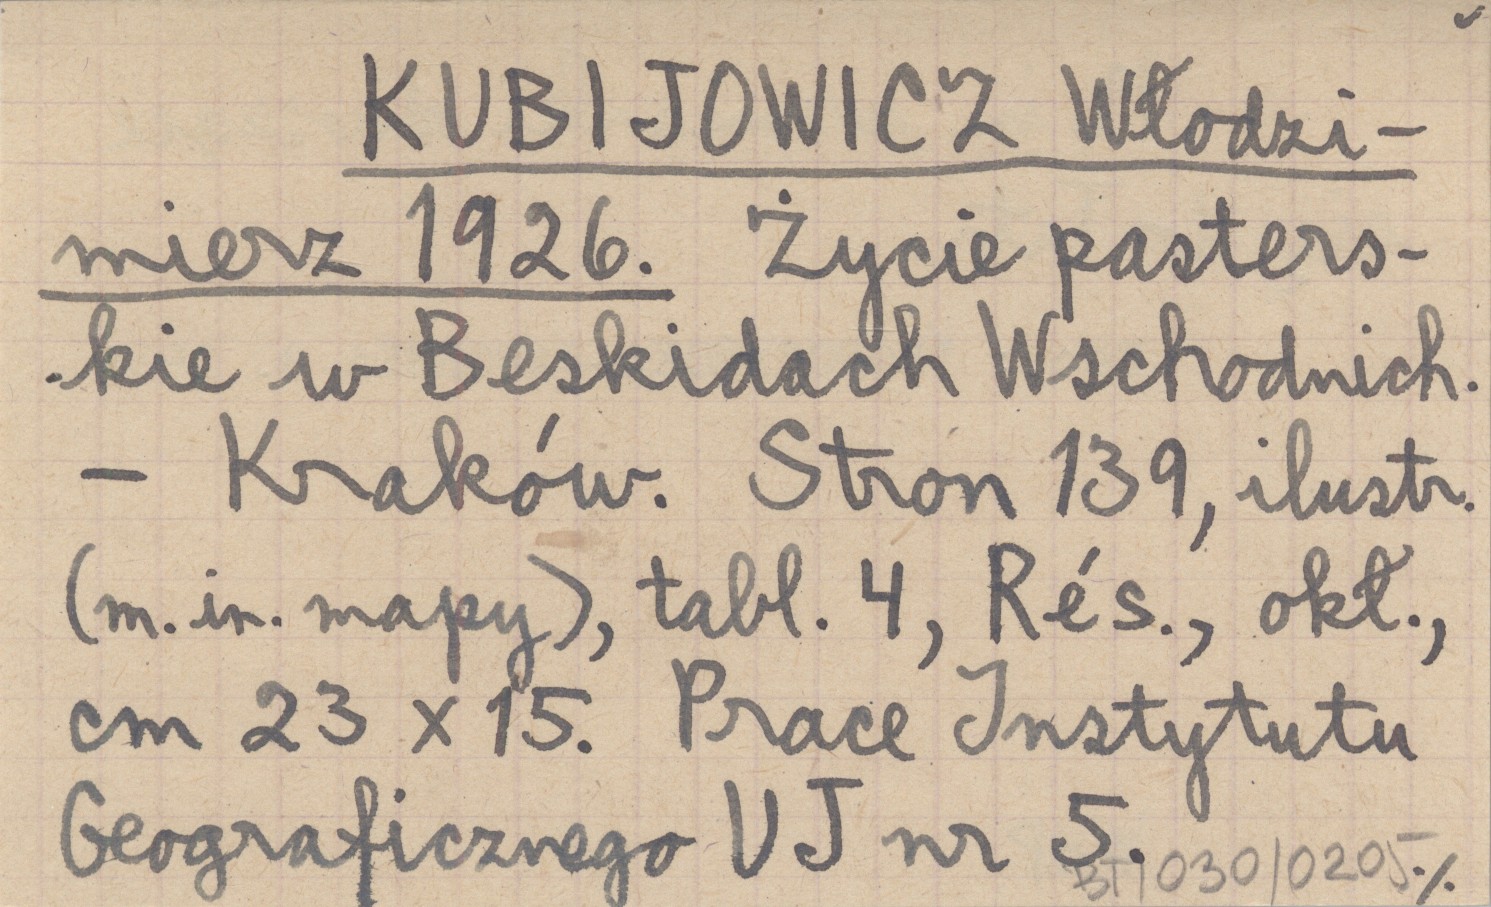 KUBIJOWICZ Włodzi-
mierz 1926. Życie pasters-
kie w Beskidach Wschodnich.
- Kraków. Stron 139, ilustr.
(m.in. mapy), tabl. 4, Rés., okł.,
cm 23 x 15. Prace Instytutu
Geograficznego UJ nr 5.
BTI030/0205 ./.